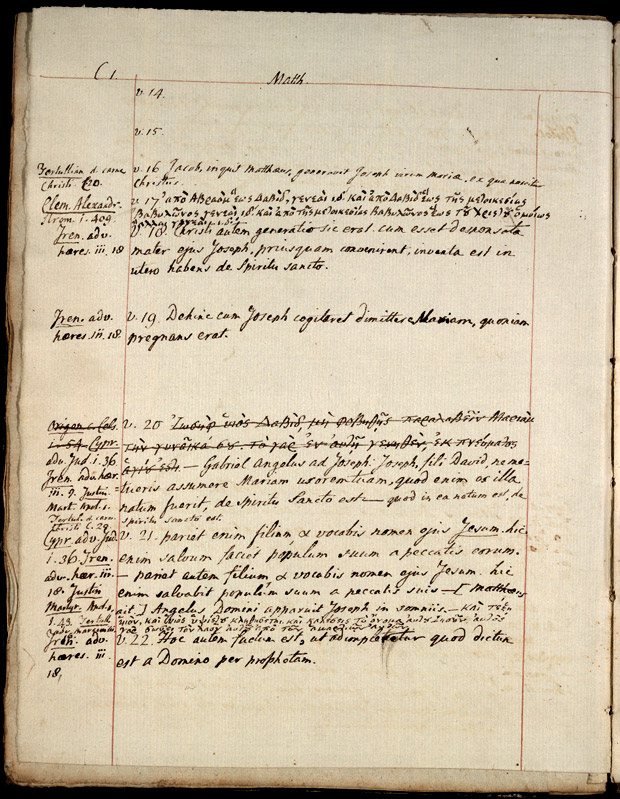 C 1. Matth.
v. 14.
v. 15.
Tertullian d. carne
Christi c. 20.
v. 16 Jacob, inquit Matthæus, generavit Joseph virum mariæ, ex qua nascitur
Christus.
Clem. Alexandr.
Strom. 1. 409.
v. 17 ἀπὸ Αβραὰμ ἕως Δαβὶδ, γενεαὶ ιδ. καὶ ἀπὸ Δαβὶδ ἕως τῆς μετοικεσίας
Βαβυλῶνος, γενεαὶ ιδ. καὶ ἀπὸ τῆς μετοικεσίας Βαβυλῶνος ἕως τοῦ χριστοῦ ὁμοίως
ἄλλαι γενεαὶ ιδ.
Iren. adv.
hæres. iii. 18
v. 18. Christi autem generatio sic erat. cum esset desponsata
mater ejus Joseph, priusquam convenirent, inventa est in
utero habens de Spiritu sancto.
Iren. adv.
hæres. iii. 18.
v. 19. Dehinc cum Joseph cogitaret dimittere Mariam, quoniam
pregnans erat.
Origen c. Cels.
1. 54. Cypr.
adv. Jud. 1. 36.
Iren. adv. hær.
iii. 9. Justin
Mart.
Tertul. d. carn.
Christi c.
v. 20 Ἰωσὴφ υἱὸς Δαβὶδ, μὴ φοβηθῇς παραλαβεῖν Μαριὰμ
τὴν γυναῖκα σου. τὸ γὰρ ἐν αὐτῇ γεννηθὲν ἐκ πνεύματος
ἁγίου ἐστι. — Gabriel Angelus ad Joseph: Joseph, fili David, ne me=
tueris assumere Mariam uxorem tuam, quod enim ex illa
natum fuerit, de Spiritu Sancto est — quod in ea natum est, de
spiritu sancto est.
Cypr. adv. Jud.
1. 36. Iren.
adv. hær. iii.
18. Justin
Martyr.
1. 43. Tertull
v. 21. pariet enim filium & vocabis nomen ejus Jesum. hic
enim salvum faciet populum suum a peccatis eorum.
— pariet autem filium & vocabis nomen ejus Jesum. hic
enim salvabit populum suum a peccatis suis — [ Matthæus
ait ] Angelus Domini apparuit Joseph in somniis. — καὶ τέξῃ
υἱὸν, καὶ υἱὸς ὑψίστου κληθήσεται. καὶ καλέσεις τὸ ὄνομα αὐτοῦ Ἰησοῦν. αὐτὸς
γὰρ σώσει τὸν λαὸν αὐτοῦ ἀπὸ τῶν ἁμαρτιῶν αὐτῶν.
Iren. adv.
hæres. iii.
18.
v. 22. Hoc autem factum est, ut adimpleretur quod dictum
est a Domino per prophetam.